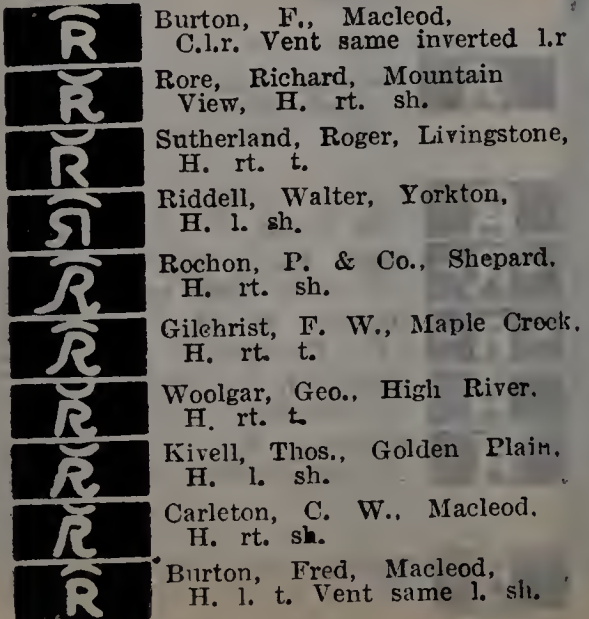 R Burton, F., Macleod,
C.l.r. Vent same inverted l.r
R Rore, Richard, Mountain
View, H. rt. sh.
R Sutherland, Roger, Livingstone,
H. rt. t.
Я Riddell, Walter, Yorkton,
H. l. sh.
R Rochon, P. & Co., Shepard.
H. rt. sh.
R Gilchrist, F. W., Maple Creek.
H. rt. t.
R Woolgar, Geo., High River.
H. rt. t.
R Kivell, Thos., Golden Plain.
H. l. sh.
R Carleton, C. W., Macleod.
H. rt. sh.
R Burton, Fred, Macleod,
H. l. t. Vent same l. sh.